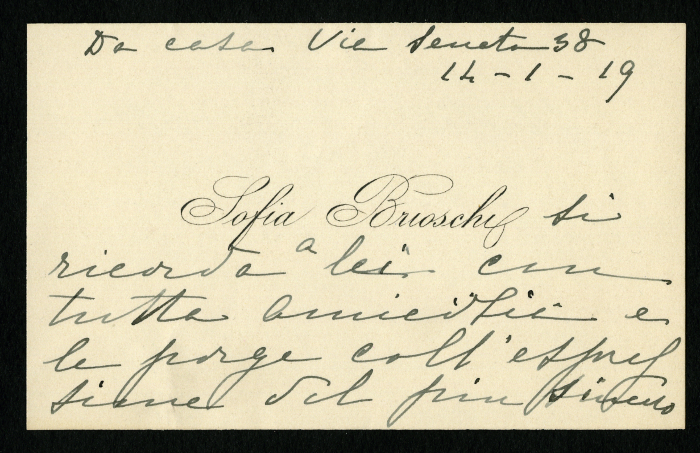 Da casa Via Veneto 38
14 - 1 - 19
Sofia Brioschi si
ricorda a lei con
tutta amicizia e
le porge coll'espres
sione del piu sincero